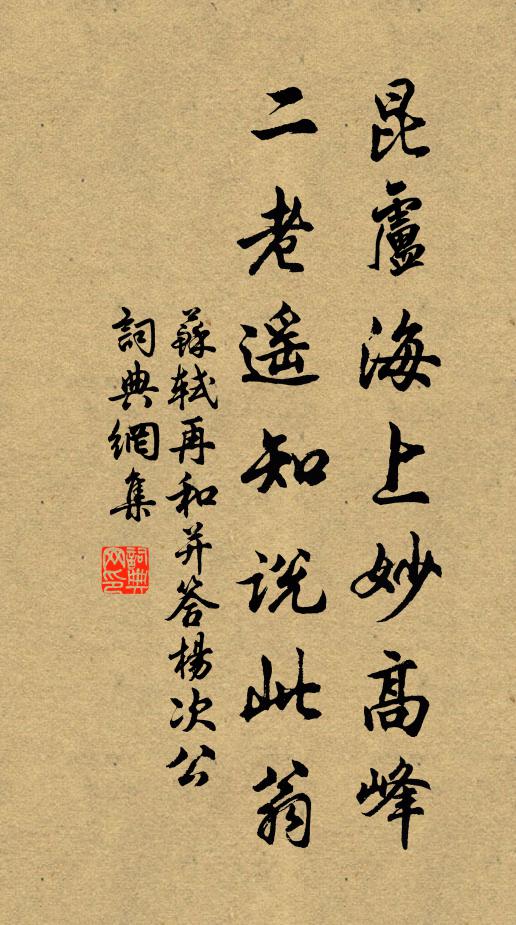 昆盧海上妙高峰
二老遥知說此翁
蘇軾再和并答楊次公
詞典網集
詞典网印